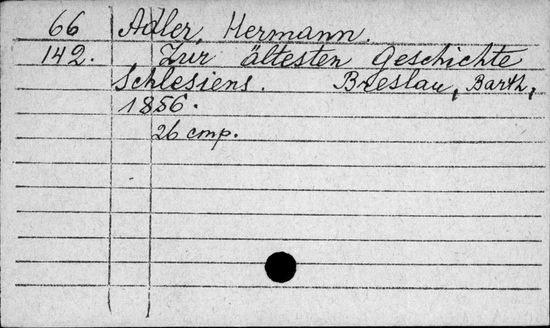 66 Adler, Hermann.
142. Zur ältesten Geschichte
Schlesiens. Breslau, Barth,
1856.
26 стр.